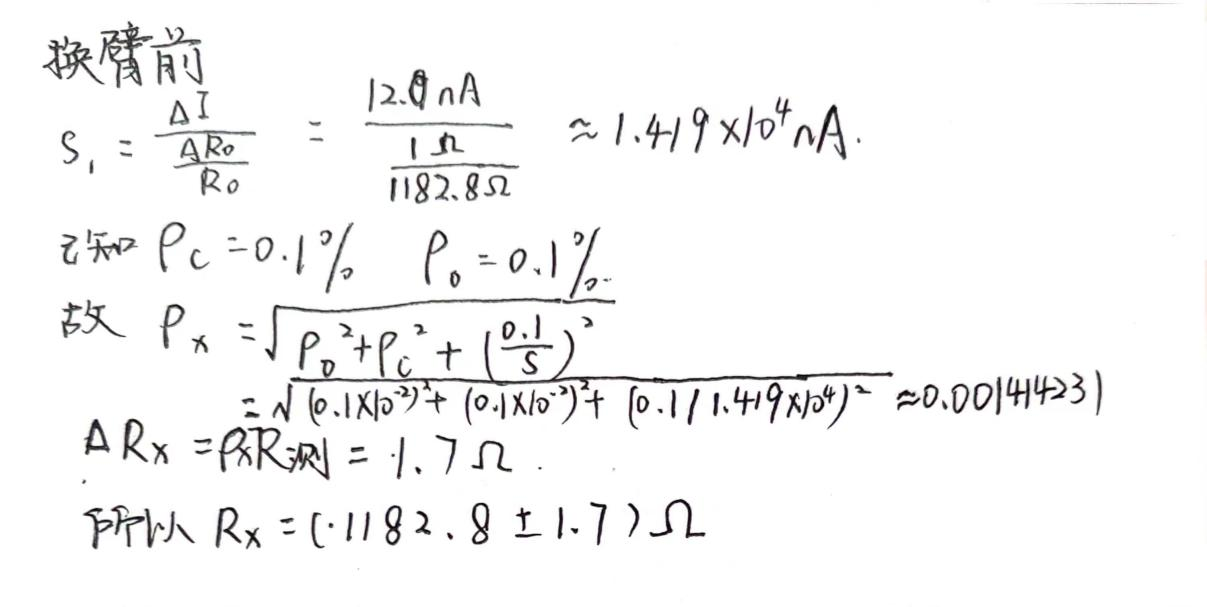 换臂前
S₁ = ΔI / (ΔR₀ / R₀) = 12.0nA / (1Ω / 1182.8Ω) ≈ 1.419×10⁴nA.
已知 ρc = 0.1% ρ₀ = 0.1%
故 ρx = √(ρ₀² + ρc² + (0.1/S)²)
= √((0.1×10⁻²)² + (0.1×10⁻²)² + (0.1/1.419×10⁴)²) ≈ 0.00141423)
ΔRx = ρxR测 = 1.7Ω.
所以 Rx = (1182.8 ± 1.7)Ω